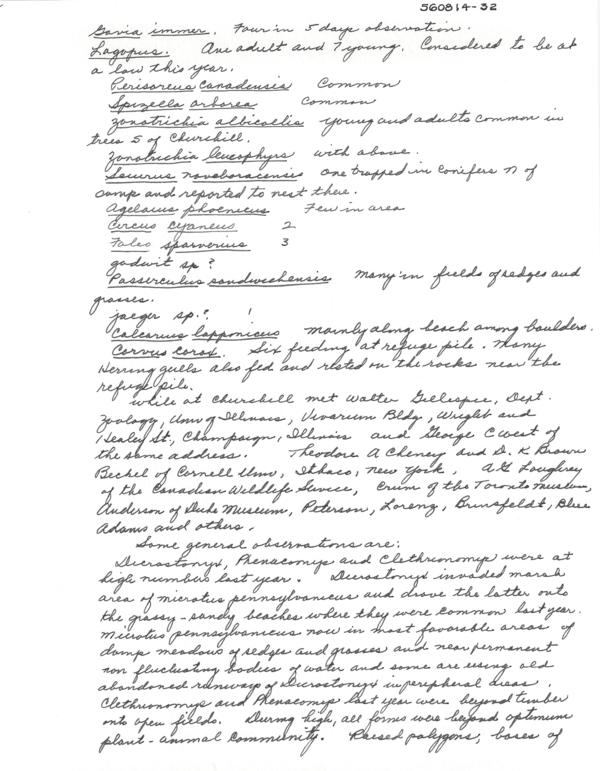 560814-32
Gavia immer. Four in 5 days observation.
Lagopus. One adult and 7 young. Considered to be at
a low this year.
Perisoreus canadensis Common
Spizella arborea Common
Zonotrichia albicollis young and adults common in
trees S of Churchill.
Zonotrichia leucophyrs with above.
Seiurus noveboracensis one trapped in conifers N of
camp and reported to nest there.
Agelaius phoenicus Few in area
Circus cyaneus 2
Falco sparverius 3
godwit sp?
Passerculus sandwichensis many in fields of sedges and
grasses.
jaeger sp.? 1
Calcarius lapponicus mainly along beach among boulders.
Corvus corax. Six feeding at refuge pile. Many
Herring gulls also fed and rested on the rocks near the
refuge pile.
While at Churchill met Walter Gillespie, Dept.
Zoology, Univ of Illinois, Vivarium Bldg, Wright and
Healey St., Champaign, Illinois and George C West of
the same address. Theodore A Cheney and D. K Brown
Bechel of Cornell Univ, Ithaca, New York, AG Loughrey
of the Canadian Wildlife Service, Crum of the Toronto Museum,
Anderson of Duke Museum, Peterson, Lorenz, Brunsfeldt, Blue
Adams and others.
Some general observations are:
Dicrostonyx, Phenacomys and Clethrionomys were at
high numbers last year. Dicrostonyx invaded marsh
area of microtus pennsylvanicus and drove the latter onto
the grassy-sandy beaches where they were common last year.
Microtus pennsylvanicus now in most favorable areas of
damp meadows of sedges and grasses and near permanent
non fluctuating bodies of water and some are using old
abandoned runways of Dicrostonyx in peripheral areas.
Clethrionomys and Phenacomys last year were beyond timber
onto open fields. During high, all forms were beyond optimum
plant-animal community. Raised polygons, bases of